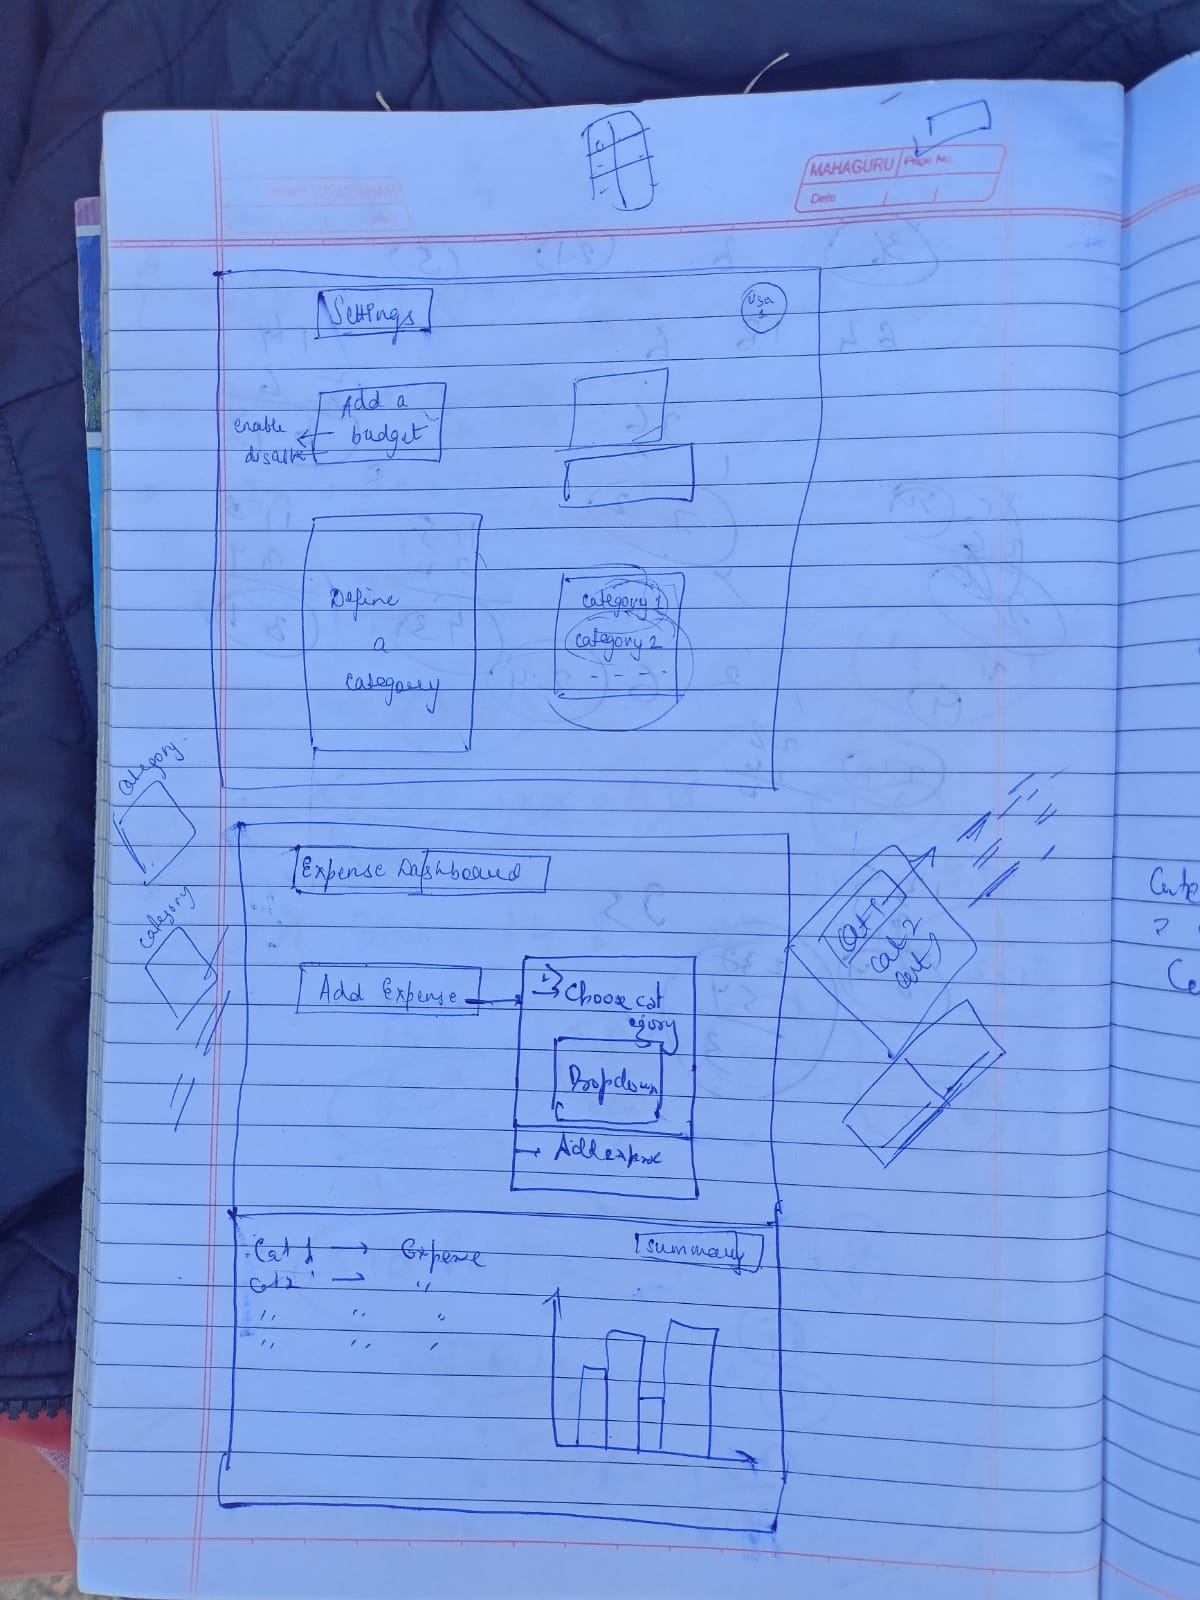 MAHAGURU
Page No.
Date
Settings
User
1
Add a
budget
enable
disable
Define
a
category
category 1
category 2
- - - -
category
category
Expense Dashboard
Add Expense
Choose cat
egory
Dropdown
Add expense
Cat 1
cat 2
cat 1 → Expense
cat 2 → "
" " "
" " "
Summary